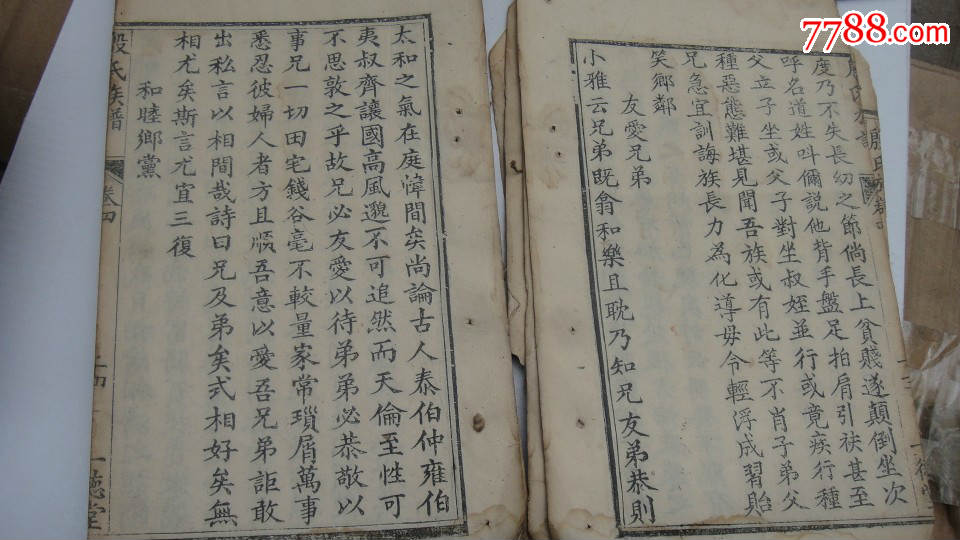 7788.com
度乃不失長幼之節倘長上貧賤遂顛倒坐次
呼名道姓叫儞説他背手盤足拍肩引袂甚至
父立子坐或父子對坐叔姪並行或竟疾行種
種惡態難堪見聞吾族或有此等不肖子弟父
兄急宜訓誨族長力為化導毋令輕浮成習貽
笑鄉鄰
友愛兄弟
小雅云兄弟既翕和樂且耽乃知兄友弟恭則
太和之氣在庭幃間矣尚論古人泰伯仲雍伯
夷叔齊讓國高風邈不可追然而天倫至性可
不思敦之乎故兄必友愛以待弟弟必恭敬以
事兄一切田宅錢谷毫不較量家常瑣屑萬事
悉忍彼婦人者方且順吾意以愛吾兄弟詎敢
出私言以相間哉詩曰兄及弟矣式相好矣無
相尤矣斯言尤宜三復
和睦鄉黨
殷氏族譜
卷四